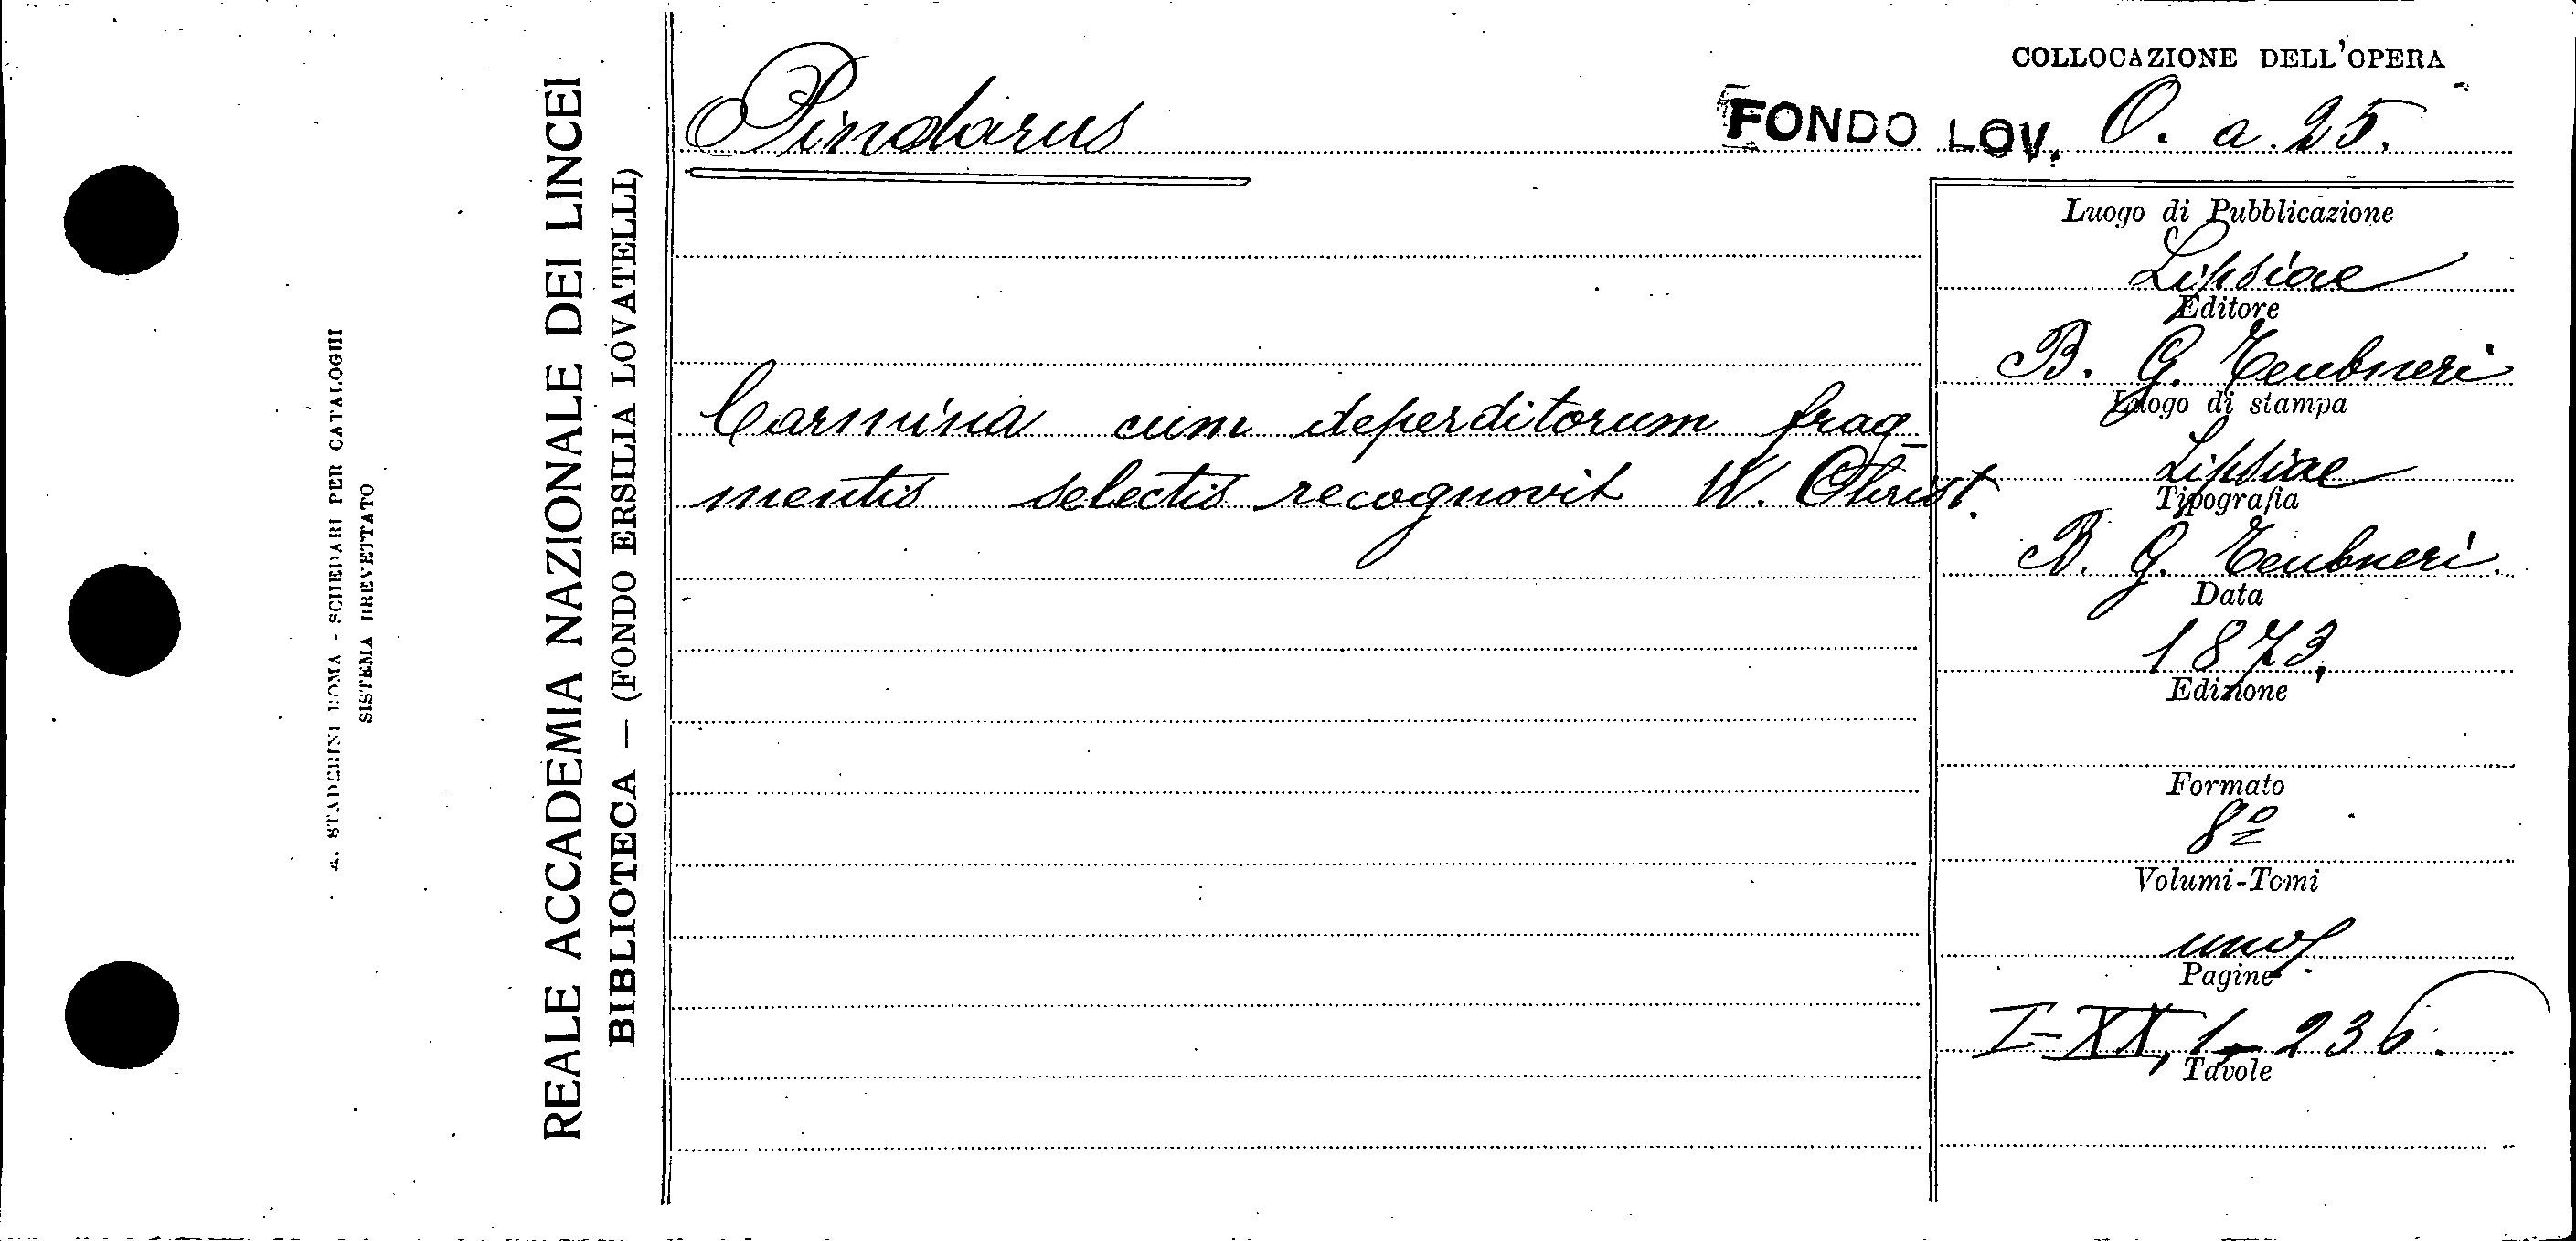 A. STADERINI ROMA - SCHEDARI PER CATALOGHI
SISTEMA BREVETTATO
REALE ACCADEMIA NAZIONALE DEI LINCEI
BIBLIOTECA — (FONDO ERSILIA LOVATELLI)
Pindarus
Carmina cum deperditorum frag-
mentis selectis recognovit W. Christ.
COLLOCAZIONE DELL'OPERA
FONDO LOV. O. a. 25.
Luogo di Pubblicazione
Lipsiae
Editore
B. G. Teubneri
Luogo di stampa
Lipsiae
Tipografia
B. G. Teubneri.
Data
1873,
Edizione
Formato
8º
Volumi-Tomi
uno
Pagine
I-XX, 1-236.
Tavole